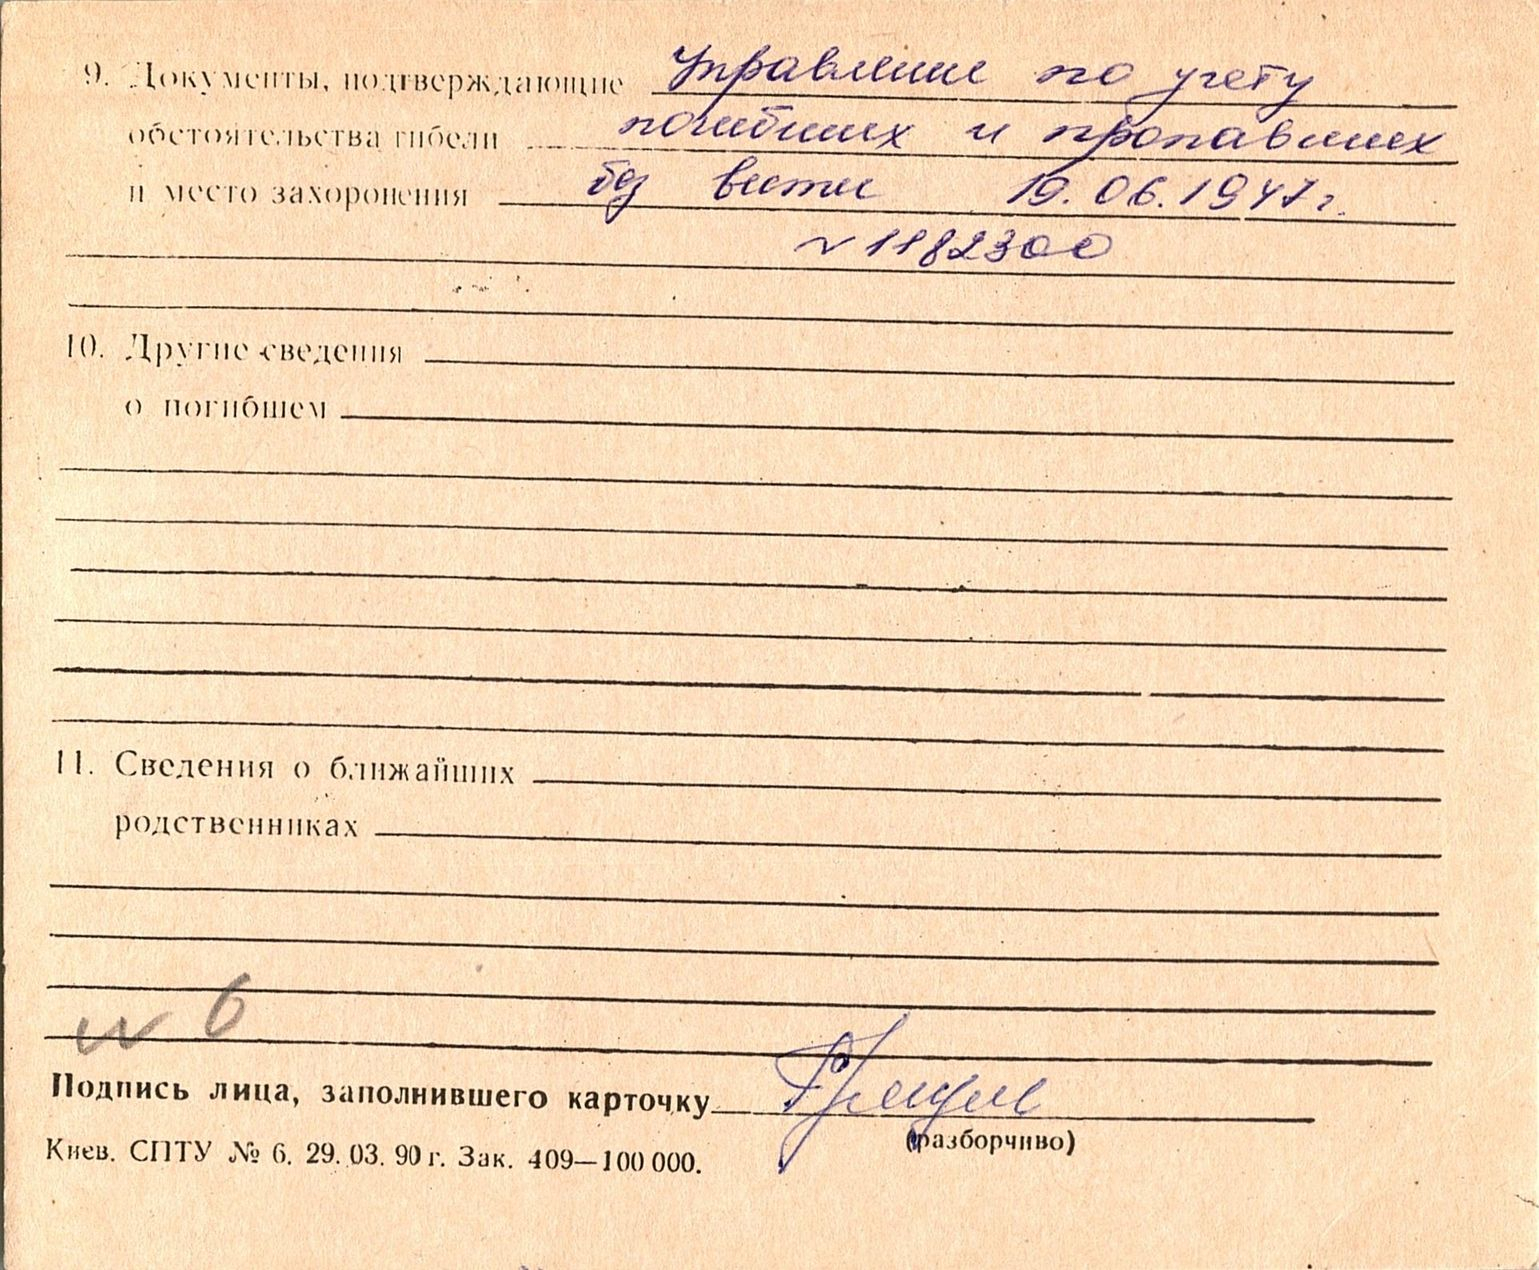 9. Документы, подтверждающие Управление по учету
обстоятельства гибели погибших и пропавших
и место захоронения без вести 19.06.1947 г.
№ 1182300
10. Другие сведения
о погибшем
11. Сведения о ближайших
родственниках
№ 6
Подпись лица, заполнившего карточку
(разборчиво)
Киев. СПТУ № 6. 29. 03. 90 г. Зак. 409—100 000.